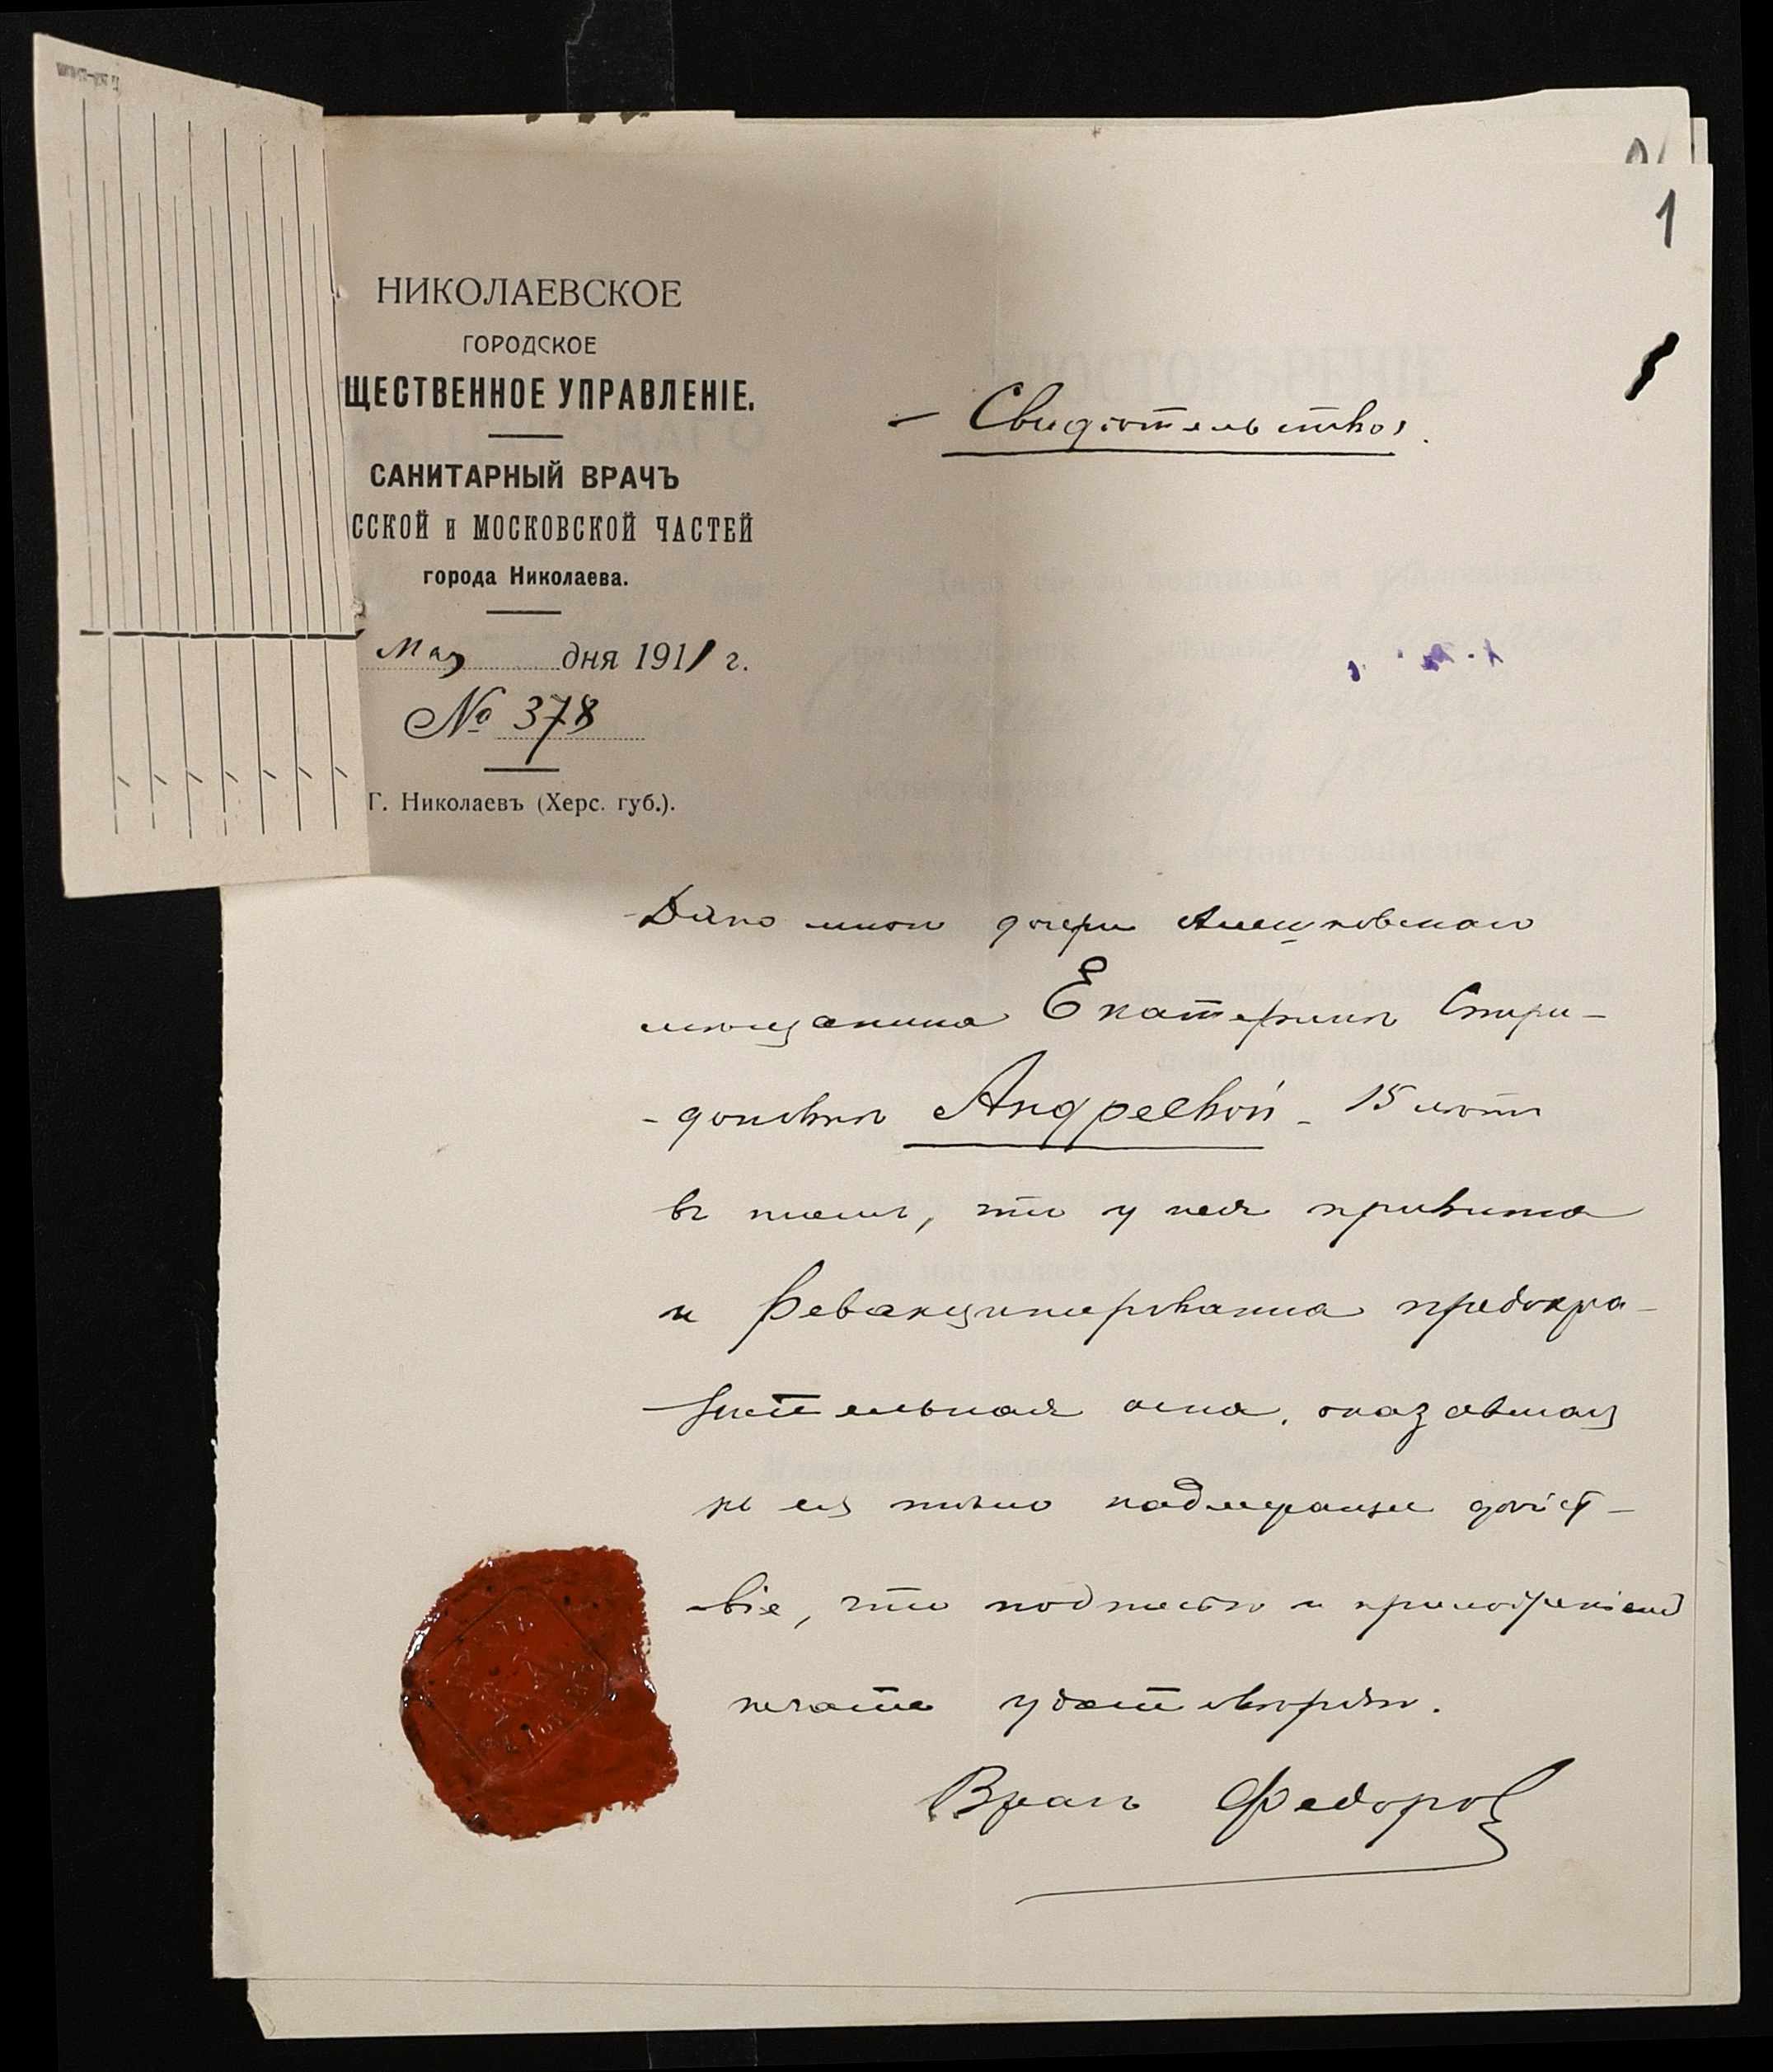 1
НИКОЛАЕВСКОЕ
ГОРОДСКОЕ
ЩЕСТВЕННОЕ УПРАВЛЕНІЕ.
САНИТАРНЫЙ ВРАЧЪ
ССКОЙ и МОСКОВСКОЙ ЧАСТЕЙ
города Николаева.
Мая дня 1911 г.
№ 378
Г. Николаевъ (Херс. губ.).
Свидѣтельство.
Дано мною дочери Алешковскаго
мѣщанина Екатеринѣ Спири-
-доновнѣ Андреевой - 15 лѣтъ
въ томъ, что у нея привита
и ревакцинирована предохра-
нительная оспа, оказавшая
на нея точно надлежащее дѣйст-
-віе, что подписью и приложеніемъ
печати удостовѣряю.
Врачъ Федоровъ